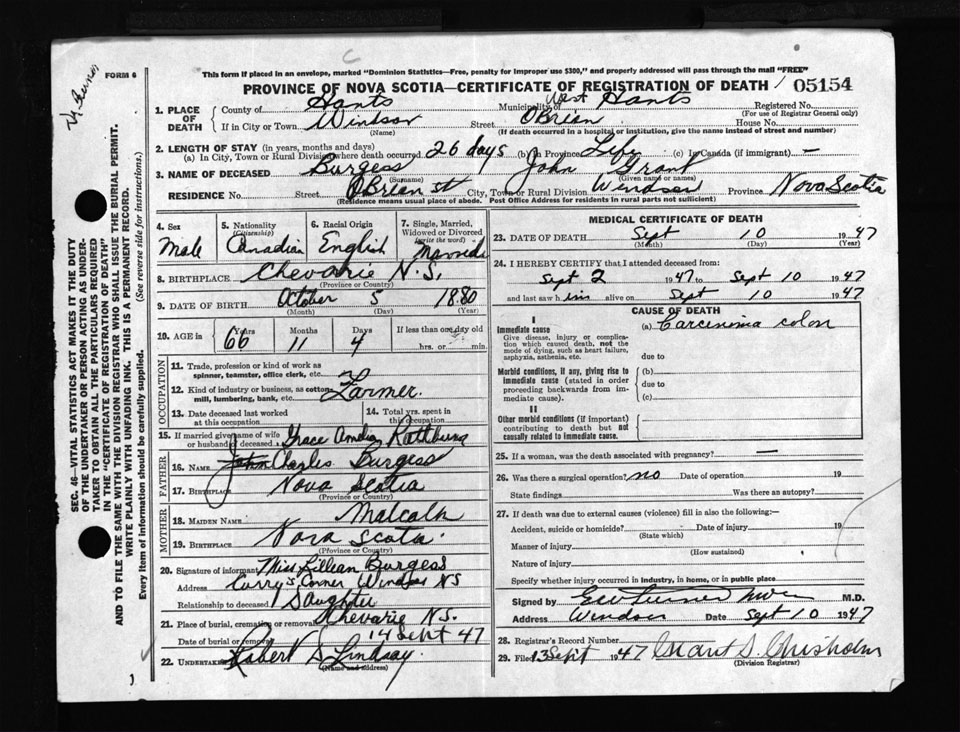 FORM 6
This form if placed in an envelope, marked "Dominion Statistics—Free, penalty for improper use $300," and properly addressed will pass through the mail "FREE"
PROVINCE OF NOVA SCOTIA—CERTIFICATE OF REGISTRATION OF DEATH 05154
1. PLACE OF DEATH County of Hants Municipality of West Hants Registered No.
(For use of Registrar General only)
If in City or Town Windsor Street OBrien House No.
(Name) (If death occurred in a hospital or institution, give the name instead of street and number)
2. LENGTH OF STAY (in years, months and days)
(a) In City, Town or Rural Division where death occurred 26 days (b) in Province Life (c) In Canada (if immigrant) —
3. NAME OF DECEASED Burgess John Grant
(Surname) (Given name or names)
RESIDENCE No. Street OBrien St City, Town or Rural Division Windsor Province Nova Scotia
(Residence means usual place of abode. Post Office Address for residents in rural parts not sufficient)
4. Sex Male
5. Nationality (Citizenship) Canadian
6. Racial Origin English
7. Single, Married, Widowed or Divorced (write the word) Married
8. BIRTHPLACE Chevarie N.S.
(Province or Country)
9. DATE OF BIRTH October 5 1880
(Month) (Day) (Year)
10. AGE in Years Months Days If less than one day old
66 11 4 hrs. or min.
OCCUPATION
11. Trade, profession or kind of work as spinner, teamster, office clerk, etc.
12. Kind of industry or business, as cotton mill, lumbering, bank, etc. Farmer.
13. Date deceased last worked at this occupation
14. Total yrs. spent in this occupation
15. If married give name of wife or husband of deceased Grace Amelia Rathburn
FATHER
16. NAME John Charles Burgess
17. BIRTHPLACE Nova Scotia
(Province or Country)
MOTHER
18. MAIDEN NAME Malcolm
19. BIRTHPLACE Nova Scotia.
(Province or Country)
20. Signature of informant Miss Lillian Burgess
Address Curry's Corner Windsor NS
Relationship to deceased Daughter
21. Place of burial, cremation or removal Chevarie N.S.
Date of burial or removal 14 Sept 47
22. UNDERTAKER Robert S Lindsay.
(Name and address)
MEDICAL CERTIFICATE OF DEATH
23. DATE OF DEATH Sept 10 1947
(Month) (Day) (Year)
24. I HEREBY CERTIFY that I attended deceased from:
Sept 2 1947 to Sept 10 1947
and last saw him alive on Sept 10 1947
CAUSE OF DEATH
I
Immediate cause (a) Carcinimia colon
Give disease, injury or complication which caused death, not the mode of dying, such as heart failure, asphyxia, asthenia, etc.
due to
Morbid conditions, if any, giving rise to immediate cause (stated in order proceeding backwards from immediate cause).
(b)
due to
(c)
II
Other morbid conditions (if important) contributing to death but not causally related to immediate cause.
25. If a woman, was the death associated with pregnancy? —
26. Was there a surgical operation? no Date of operation 19
State findings Was there an autopsy?
27. If death was due to external causes (violence) fill in also the following:—
Accident, suicide or homicide? Date of injury 19
(State which)
Manner of injury
(How sustained)
Nature of injury
Specify whether injury occurred in industry, in home, or in public place
Signed by M.D.
Address Windsor Date Sept 10 1947
28. Registrar's Record Number
29. Filed 13 Sept 1947 Grant S. Chisholm
(Division Registrar)
SEC. 46—VITAL STATISTICS ACT MAKES IT THE DUTY
OF THE UNDERTAKER OR PERSON ACTING AS UNDER-
TAKER TO OBTAIN ALL THE PARTICULARS REQUIRED
IN THE "CERTIFICATE OF REGISTRATION OF DEATH"
AND TO FILE THE SAME WITH THE DIVISION REGISTRAR WHO SHALL ISSUE THE BURIAL PERMIT.
WRITE PLAINLY WITH UNFADING INK. THIS IS A PERMANENT RECORD.
Every item of information should be carefully supplied. (See reverse side for instructions.)